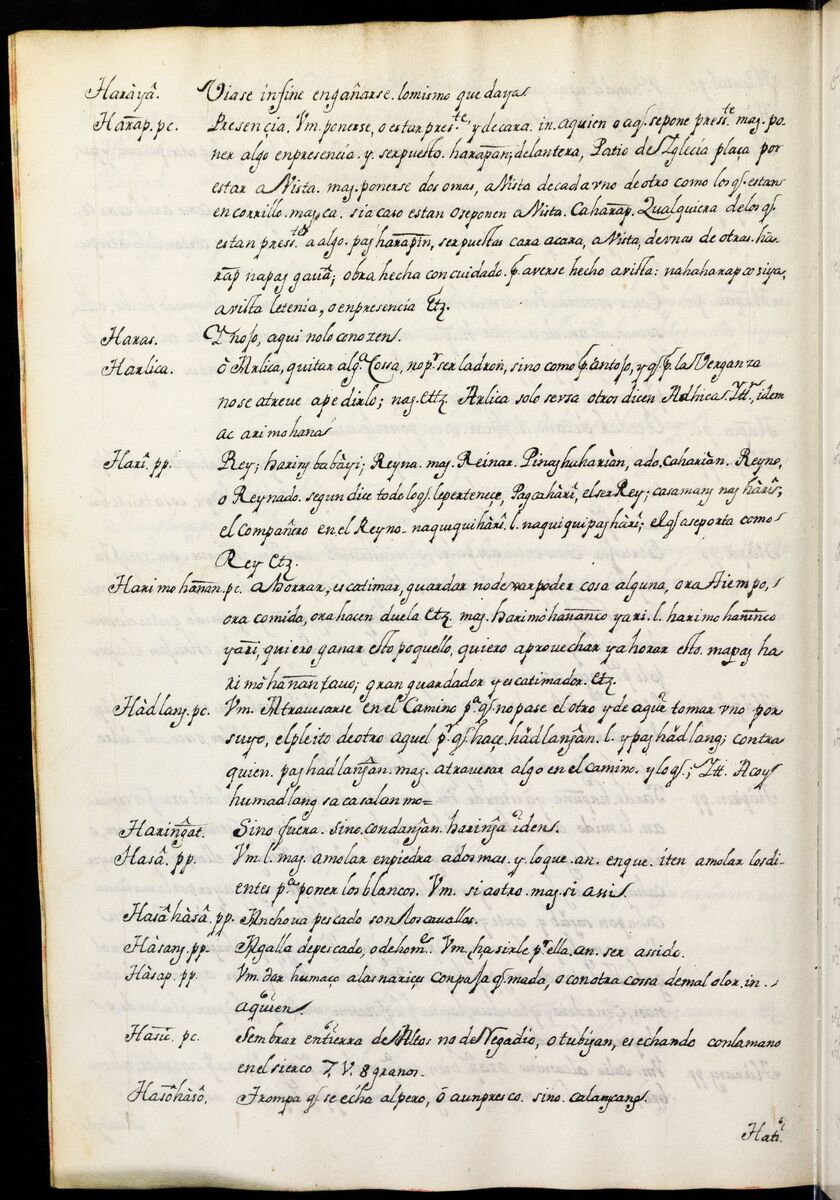 Haràyâ. Viase in fine engañarse. lo mismo que dayas.
Harap. pc. Presençia. Vm. ponerse, o estar pres.te y de cara. in. a quien o a qƒ. se pone press.te mag. po-
ner algo en presencia. y. ser puesto. harapan; delantera, Patio de Yglecia plaça por
estar a Vista. mag. ponerse dos o mas, a Vista de cada vno de otro como los qƒ. estan
en corrillo. mag, ca. si a caso estan o se ponen a Vista. Caharap. Qualquiera de los qƒ.
estan press.tes a algo. pag harapin, ser puestas cara a cara, a Vista, de vnas de otras. ha-
rap na pag gauâ; obra hecha con cuidado. averse hecho a vista: nahaharap co siya,
a vista le tenia, o en presencia Etz.
Haras. Thoso, aqui no lo conozen.
Harlica. ò Arlica, quitar alg.a Cossa, no pr ser ladron, sino como antojo, y qƒ. la Verganza
no se atreve a pedirlo; nag. Ettz. Arlica solo se vsa otros dicen Adhica. Itt., idem
ac arimohanas
Harî. pp. Rey; haring babàyi; Reyna. mag. Reinar. Pinaghuharìan, ado. Caharìan. Reyno,
o Reynado. segun dice todo lo qƒ. le perteneçe, Pagcahàrî, el ser Rey; casamang nag hàrî;
el compañero en el Reyno. naquiquihàrî. l. naquiquipaghàrî; el qƒ. a se porta como
Rey Etz.
Harimohanan. pc. ahorrar, escatimar, guardar no dexar poder cosa alguna, ora tiempo,
ora comida, ora hacenduela Etz. mag. harimòhananco yari. l. harimohaninco
yari, quiero ganar esto poquello, quiero aprovechar y ahorar esto. mapag ha
rimòhanan tauo; gran guardador y escatimador. Etz.
Hàdlang. pc. Vm. Atravesarse en el Camino p.a qƒ. no pase el otro y de aqui tomar vno por
suyo, el pleito de otro aquel pr. qƒ. haçe. hadlangan. l. ypaghadlang; contra
quien. paghadlangan. mag. atravesar algo en el camino. y lo qƒ.; Itt. Acoy
humadlang sa casalan mo=
Haringat. Sino fuera. sino. condangan. haringa idem.
Hasâ. pp. Vm. l. mag. amolar en piedra a dos mas. y. lo que. an. en que. iten amolar los di-
entes p.a ponerlos blancos. Vm. si a otro. mag. si assi.
Hasâhàsâ. pp. Anchova pescado son los cavallas.
Hàsang. pp. Agalla de pescado, o de hom.e Vm. hasirle pr. ella. an. ser assido.
Hàsap. pp. Vm. dar humaço a las nariçes con paja qƒ.mada, o con otra cossa de mal olor. in.
a quien.
Hasic. pc. Sembrar en tierra de Altos no de Regadio, o tubigan, es echando con la mano
en el sierco 7. V. 8 granos.
Hasôhàsô, Trompa qƒ. se echa al pero, ò aun presco. sino. calangcang.
Hati.